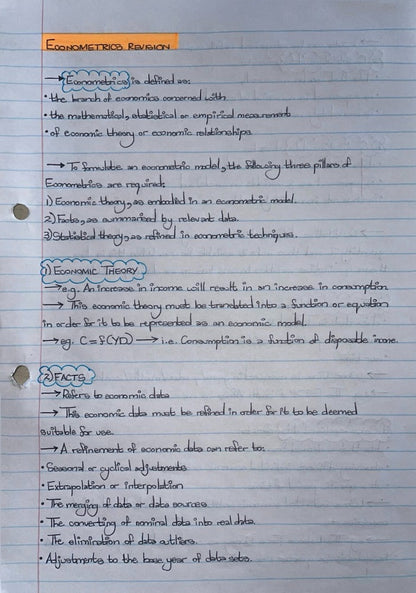 ECONOMETRICS REVISION
→ Econometrics is defined as:
• the branch of economics concerned with
• the mathematical, statistical or empirical measurement
• of economic theory or economic relationships.
→ To formulate an econometric model, the following three pillars of
Econometrics are required:
1) Economic theory, as embodied in an econometric model.
2) Facts, as summarized by relevant data.
3) Statistical theory, as refined in econometric techniques.
1) ECONOMIC THEORY
→ e.g. An increase in income will result in an increase in consumption
→ This economic theory must be translated into a function or equation
in order for it to be represented as an economic model.
→ eg. C = f(YD) → i.e. Consumption is a function of disposable income.
2) FACTS
→ Refers to economic data
→ This economic data must be refined in order for it to be deemed
suitable for use.
→ A refinement of economic data can refer to:
• Seasonal or cyclical adjustments
• Extrapolation or interpolation
• The merging of data or data sources
• The converting of nominal data into real data.
• The elimination of data outliers.
• Adjustments to the base year of data sets.